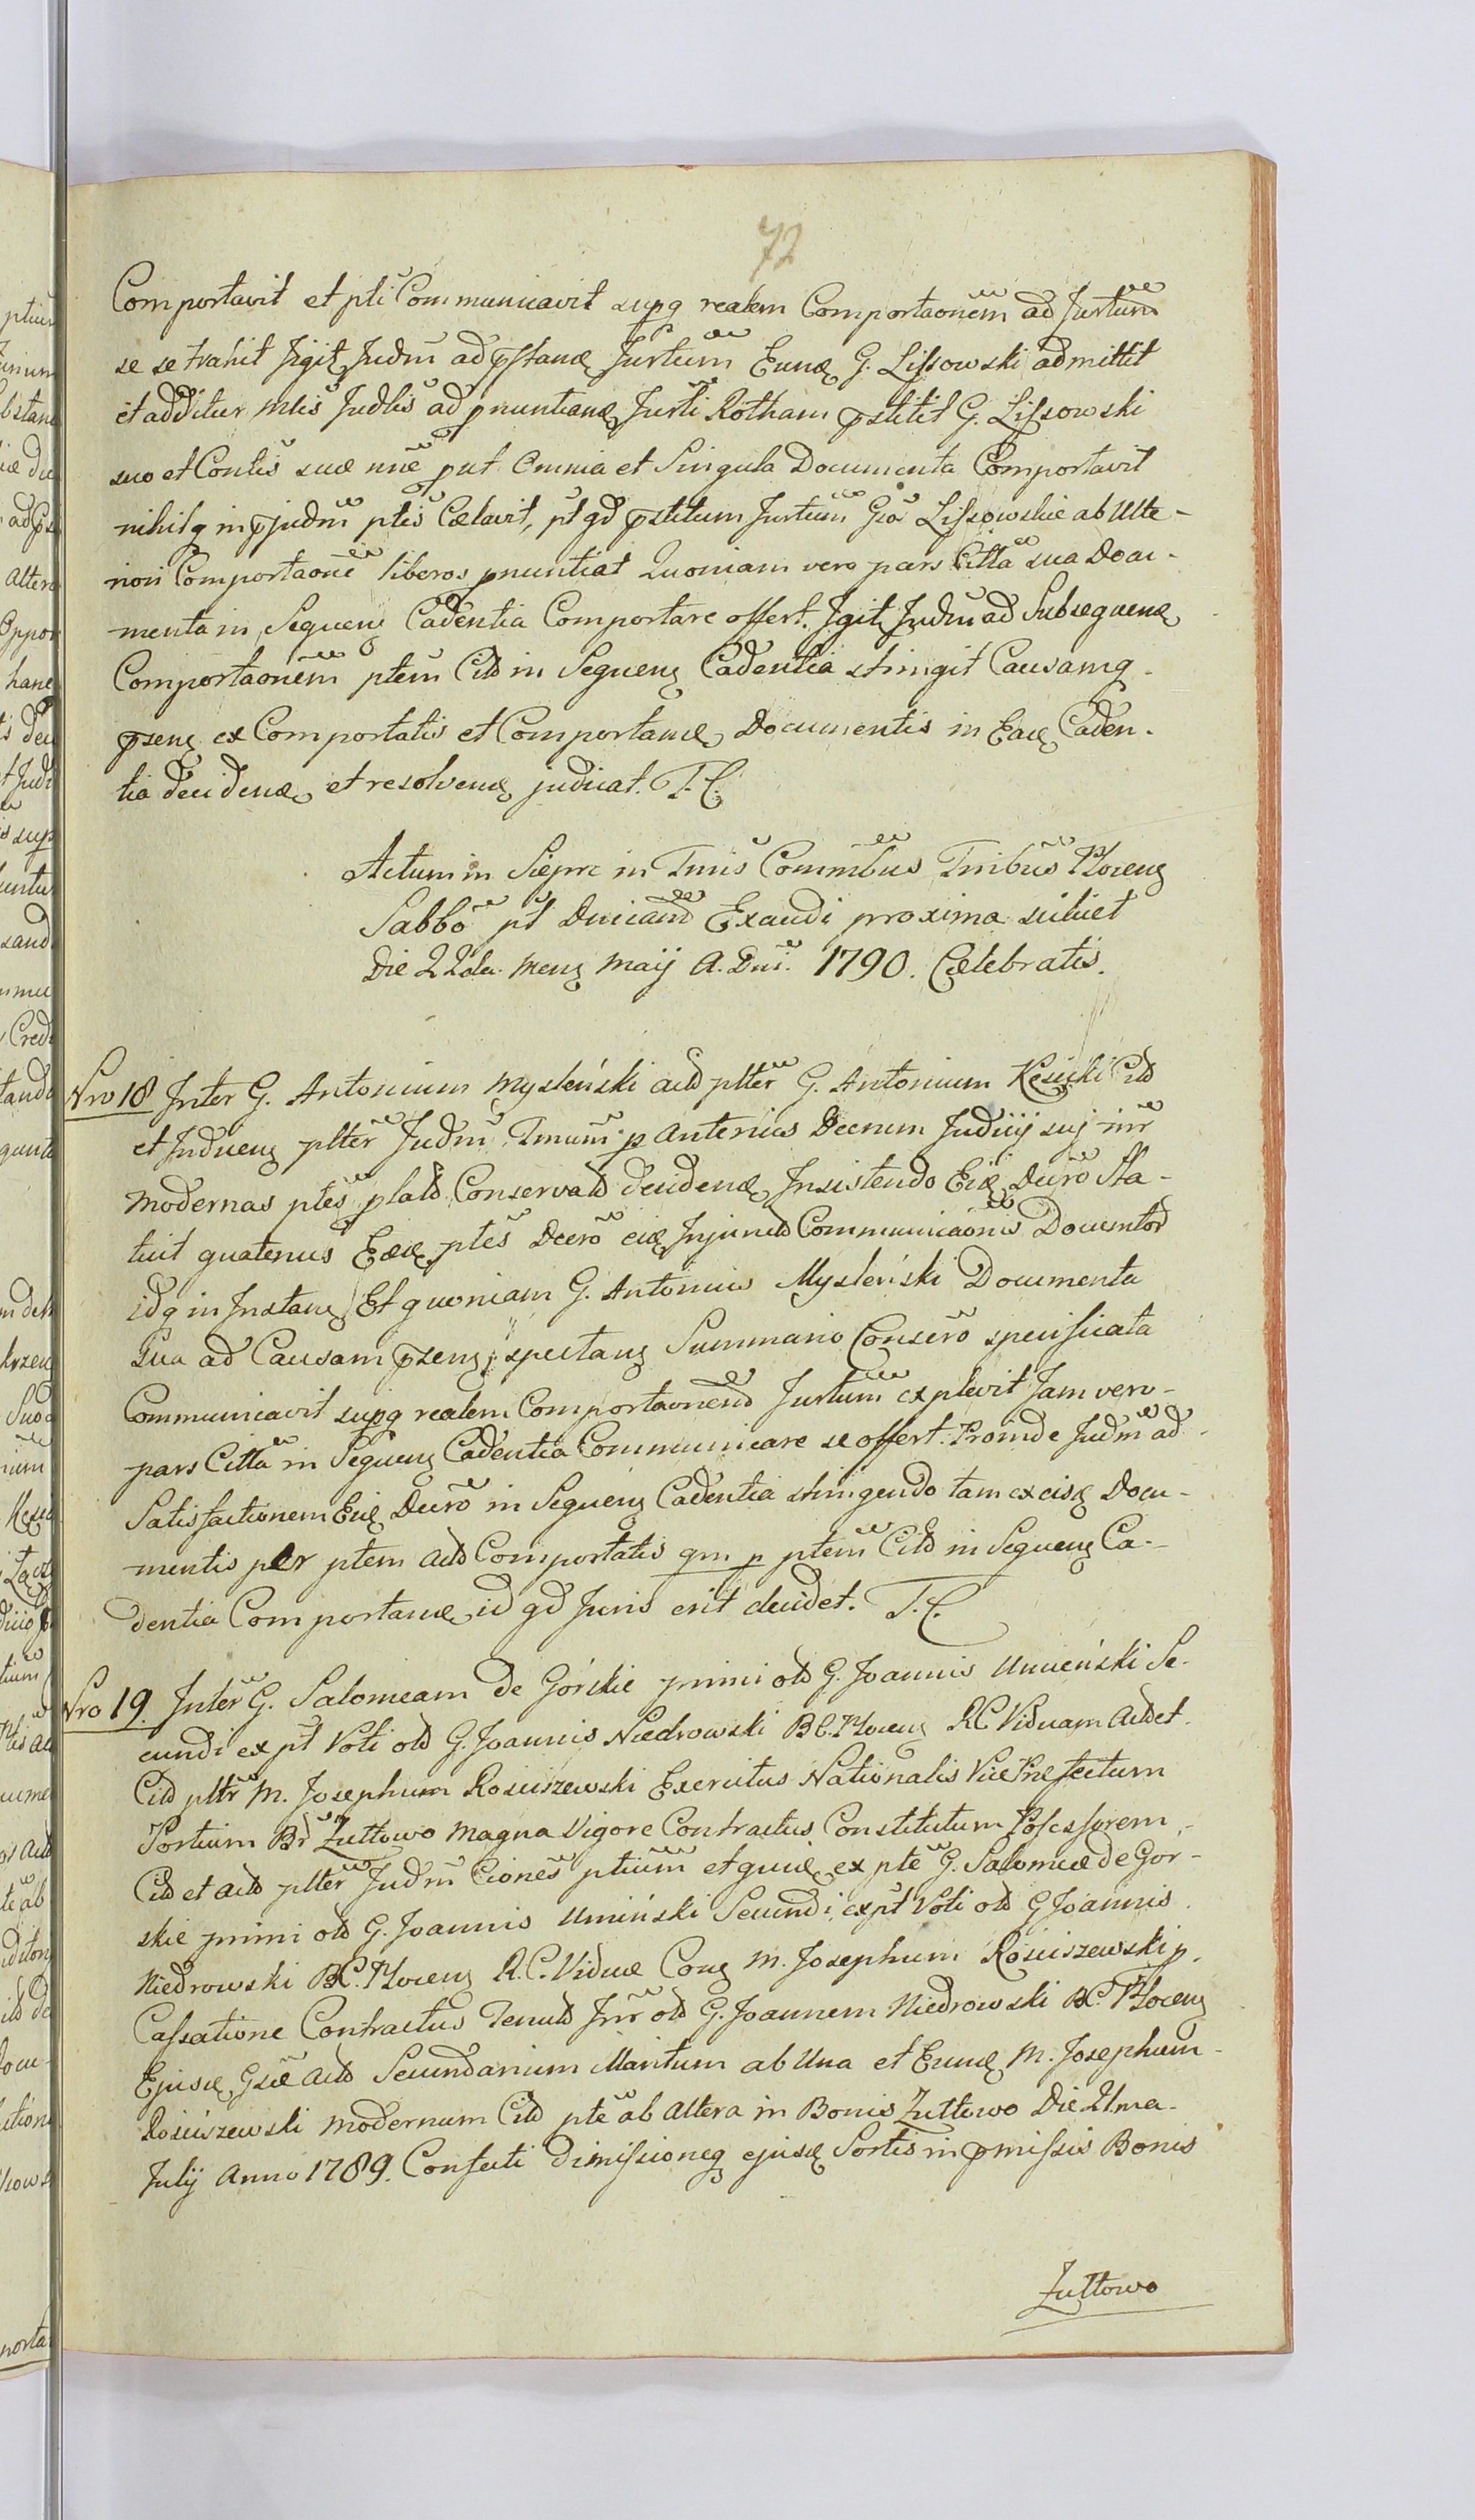 72
Comportavit et pti Communicavit supq realem Comportaonem ad Jurtum
se se trahit Jigit Judm ad pstanđ Jurtum Eunđ G. Lissowski admittit
et additur Mlis Judlis ad pnuntianđ Jurti Rotham pstitit G. Lissowski
suo et Contis suæ nne put Omnia et Singula Documenta Comportavit
nihilq in pjudm ptis Cælavit, pt qd pstitum Jurtum Gsos Lissowskie ab Ulte-
riori Comportaone liberos pnuntiat Quoniam vero pars Citta sua Docu-
menta in Sequenʒ Cadentia Comportare offert. Igit Judm ad Subsequenđ
Comportaonem ptem Citđ in Sequenʒ Cadentia stringit Causamq
psenʒ ex Comportatis et Comportanđ Documentis in Eađ Caden-
tia decidenđ et resolvenđ judicat. T. C.
Actum in Siepre in Tmis Commibus Tmibus Plocenʒ
Sabbo pt Dnicam Exaudi proxima scilicet
Die 22da Menʒ Maij A. Dni. 1790. Celebratis.
Nro 18 Inter G. Antonium Mysleński actđ plter G. Antonium Kęsicki Citđ
et Inducenʒ plter Judm Tmum p Anterius Decrum Judicij suj inr
modernas ptes platđ Conservatđ decidenđ Insistendo Eiđ Decro Sta-
tuit quatenus Eæđ ptes Decro eiđ Injunctđ Communicaonis Documtor
idq in Instanʒ Et quoniam G. Antonius Mysleński Documenta
Sua ad Causam psenʒ spectanʒ Summario Consero specificata
Communicavit supq realem Comportaonem Jurtum explevit Jam vero
pars Citta in Sequenʒ Cadentia Communicare se offert. Proinde Judm ad
Satisfactionem Eiđ Decro in Sequenʒ Cadentia stringendo tam ex eisđ Docu-
mentis per ptem Actđ Comportatis qm p ptem Citđ in Sequenʒ Ca-
dentia Comportanđ id qd Juris erit decidet. T. C.
Nro 19. Inter G. Salomeam de Górskie primi otđ G. Joannis Umieński Se-
cundi ex pt Voti otđ G. Joannis Niedrowski B C. Plocenʒ RC Viduam Actđ et
Citđ pltr M. Josephum Rosciszewski Exercitus Nationalis Vice Præfectum
Sortium Br Zuttowo Magna Vigore Contractus Constitutum Possessorem
Citđ et actđ plter Judm Ciones ptium et quiđ ex pte G. Salomeæ de Gor-
skie primi otđ G. Joannis Umiński Secundi expt Voti otđ G Joannis
Niedrowski BC. Plocenʒ R. C. Viduæ Conʒ M. Josephum Rosciszewski p
Cassatione Contractus Tenutđ Inr otđ G. Joannem Niedrowski BC. Plocenʒ
Ejusđ Gsæ Actđ Secundarium Maritum ab Una et Eunđ M. Josephum
Rosciszewski modernum Citđ pte ab Altera in Bonis Zuttowo Die 21ma
Julij Anno 1789. Confecti dimissioneq ejusđ Sortis in pmissis Bonis
Zuttowo